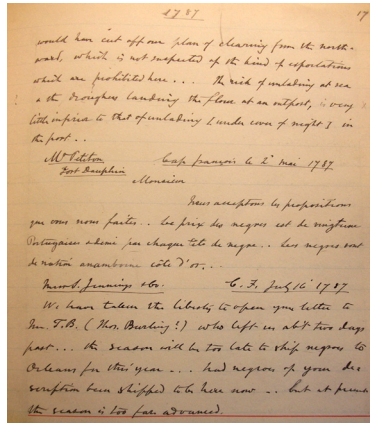 1787 17
would have cut off our plan of clearing from the north-
ward, which is not suspected of the kind of exportations
which are prohibited here... the risk of unlading at sea
a the droughers landing the flour at an outpost, is very
little inferior to that of unlading [under cover of night] in
the port..
Mr Petiton Cap français le 2e Mai 1787
Fort Dauphin
Monsieur
Nous acceptons les propositions
que vous nous faites.. les prix des negres est de vingt une
Portugaises & demie par chaque tête de negre.. Les negres sont
de nation anamboue côte d'or...
Messrs Jennings & Co. C. F. July 16 1787
We have taken the liberty to open your letter to
Mr. T.B. (Thos. Burling?) who left us abt two days
past... the season will be too late to ship negroes to
Orleans for this year... had negroes of your des-
cription been shipped to be here now.. but at present
the season is too far advanced.